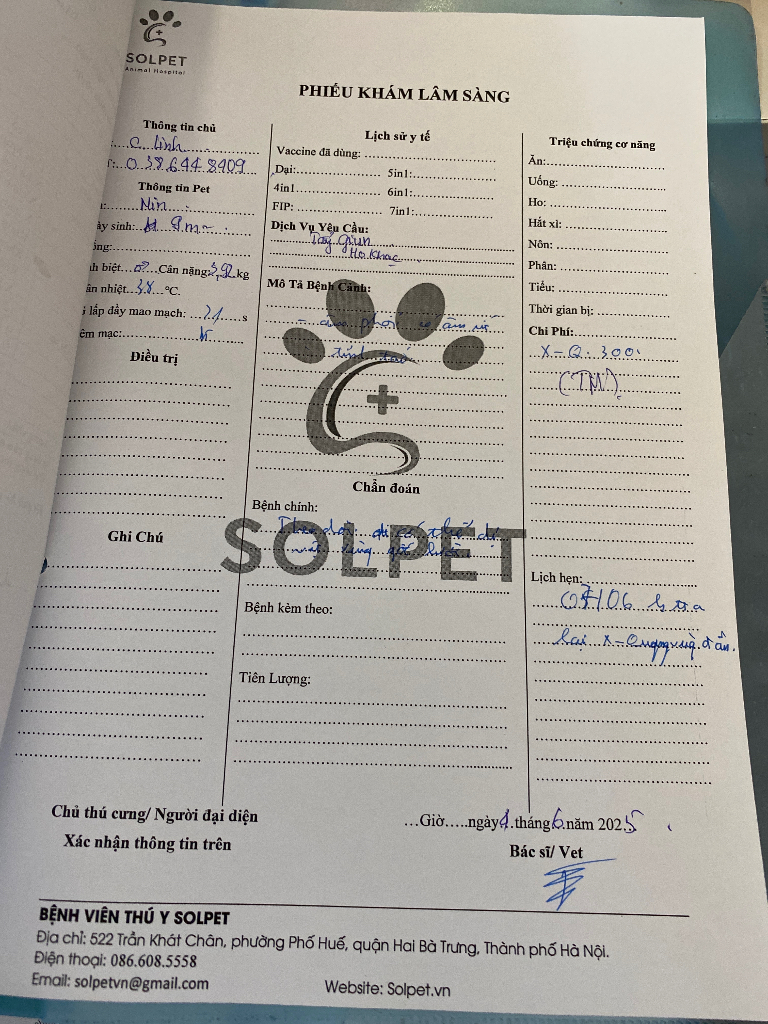 SOLPET
Animal Hospital
PHIẾU KHÁM LÂM SÀNG
Thông tin chủ
C. Linh
0386448409
Thông tin Pet
Nin
ày sinh: 9m
ống:
nh biệt: ♂ Cân nặng: 3,92 kg
ân nhiệt: 38 °C.
i lấp đầy mao mạch: s
êm mạc:
Điều trị
Ghi Chú
Lịch sử y tế
Vaccine đã dùng:
Dại: 5in1:
4in1 6in1:
FIP: 7in1:
Dịch Vụ Yêu Cầu:
Tẩy Giun
Ho Khạc
Mô Tả Bệnh Cảnh:
Chẩn đoán
Bệnh chính:
Theo dõi dị
Bệnh kèm theo:
Tiên Lượng:
Triệu chứng cơ năng
Ăn:
Uống:
Ho:
Hắt xì:
Nôn:
Phân:
Tiểu:
Thời gian bị:
Chi Phí:
X-Q. 300
(TM)
Lịch hẹn:
07/06 k tra
lại X-Quang vùng đầu.
SOLPET
Chủ thú cưng/ Người đại diện
Xác nhận thông tin trên
...Giờ.....ngày 4 tháng 6 năm 2025
Bác sĩ/ Vet
BỆNH VIÊN THÚ Y SOLPET
Địa chỉ: 522 Trần Khát Chân, phường Phố Huế, quận Hai Bà Trưng, Thành phố Hà Nội.
Điện thoại: 086.608.5558
Email: solpetvn@gmail.com Website: Solpet.vn